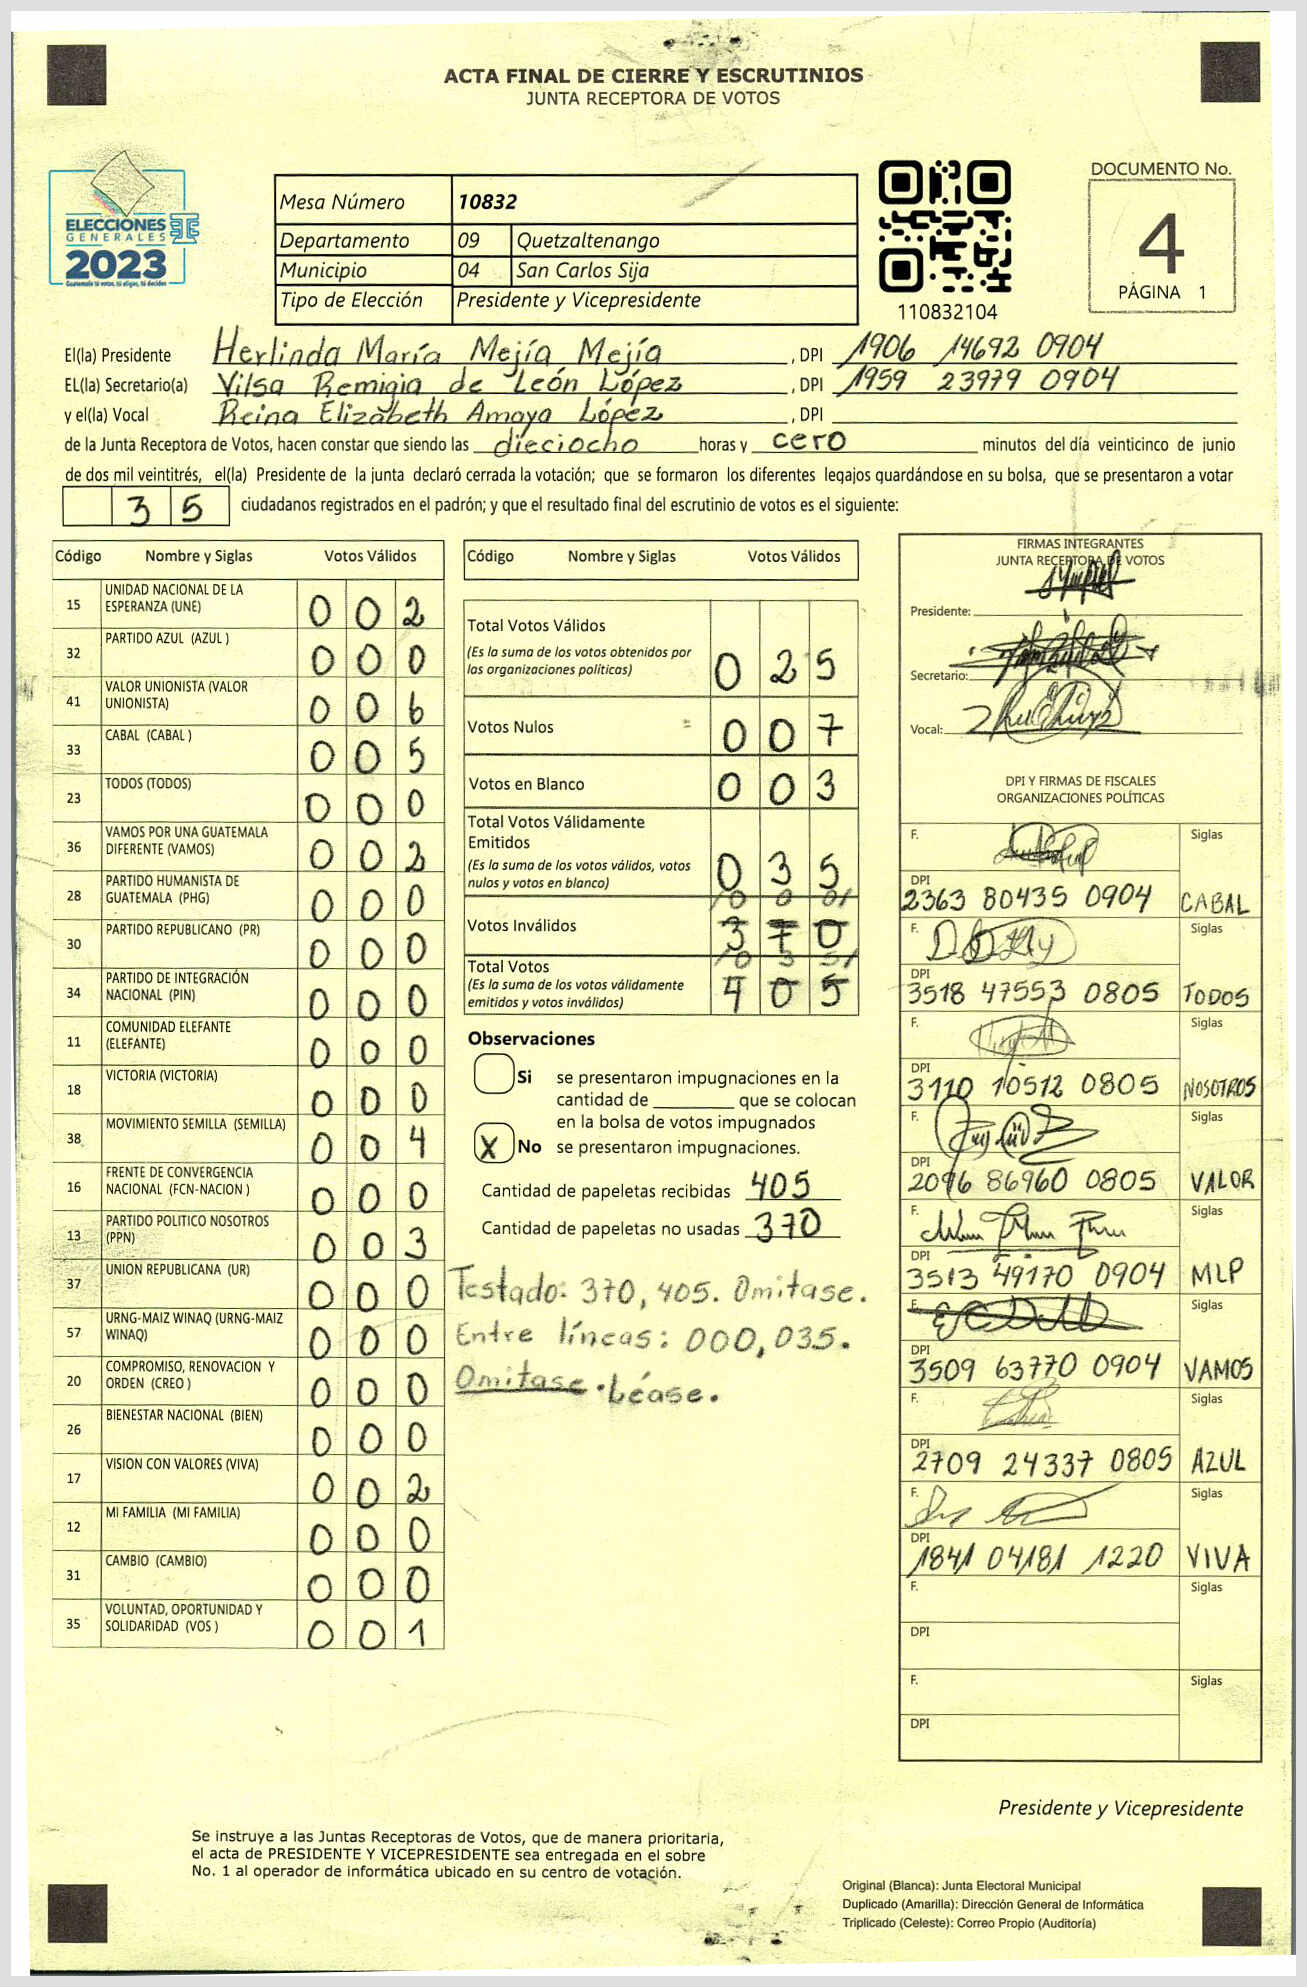 ACTA FINAL DE CIERRE Y ESCRUTINIOS
JUNTA RECEPTORA DE VOTOS
ELECCIONES
GENERALES
2023
Guatemala tú votas, tú eliges, tú decides
Mesa Número 10832
Departamento 09 Quetzaltenango
Municipio 04 San Carlos Sija
Tipo de Elección Presidente y Vicepresidente
110832104
DOCUMENTO No.
4
PÁGINA 1
El(la) Presidente Herlinda María Mejía Mejía, DPI 1906 14692 0904
EL(la) Secretario(a) Vilsa Remigia de León López, DPI 1959 23979 0904
y el(la) Vocal Reina Elizabeth Amaya López, DPI
de la Junta Receptora de Votos, hacen constar que siendo las dieciocho horas y cero minutos del día veinticinco de junio
de dos mil veintitrés, el(la) Presidente de la junta declaró cerrada la votación; que se formaron los diferentes legajos guardándose en su bolsa, que se presentaron a votar
35 ciudadanos registrados en el padrón; y que el resultado final del escrutinio de votos es el siguiente:
Código Nombre y Siglas Votos Válidos
15 UNIDAD NACIONAL DE LA
ESPERANZA (UNE) 0 0 2
32 PARTIDO AZUL (AZUL ) 0 0 0
41 VALOR UNIONISTA (VALOR
UNIONISTA) 0 0 6
33 CABAL (CABAL ) 0 0 5
23 TODOS (TODOS) 0 0 0
36 VAMOS POR UNA GUATEMALA
DIFERENTE (VAMOS) 0 0 2
28 PARTIDO HUMANISTA DE
GUATEMALA (PHG) 0 0 0
30 PARTIDO REPUBLICANO (PR) 0 0 0
34 PARTIDO DE INTEGRACIÓN
NACIONAL (PIN) 0 0 0
11 COMUNIDAD ELEFANTE
(ELEFANTE) 0 0 0
18 VICTORIA (VICTORIA) 0 0 0
38 MOVIMIENTO SEMILLA (SEMILLA) 0 0 4
16 FRENTE DE CONVERGENCIA
NACIONAL (FCN-NACION ) 0 0 0
13 PARTIDO POLITICO NOSOTROS
(PPN) 0 0 3
37 UNION REPUBLICANA (UR) 0 0 0
57 URNG-MAIZ WINAQ (URNG-MAIZ
WINAQ) 0 0 0
20 COMPROMISO, RENOVACION Y
ORDEN (CREO ) 0 0 0
26 BIENESTAR NACIONAL (BIEN) 0 0 0
17 VISION CON VALORES (VIVA) 0 0 2
12 MI FAMILIA (MI FAMILIA) 0 0 0
31 CAMBIO (CAMBIO) 0 0 0
35 VOLUNTAD, OPORTUNIDAD Y
SOLIDARIDAD (VOS ) 0 0 1
Código Nombre y Siglas Votos Válidos
Total Votos Válidos
(Es la suma de los votos obtenidos por
las organizaciones políticas) 0 2 5
Votos Nulos 0 0 7
Votos en Blanco 0 0 3
Total Votos Válidamente
Emitidos
(Es la suma de los votos válidos, votos
nulos y votos en blanco) 0 3 5
/0 0 0/
Votos Inválidos 3 7 0
/0 3 5/
Total Votos
(Es la suma de los votos válidamente
emitidos y votos inválidos) 4 0 5
Observaciones
Si se presentaron impugnaciones en la
cantidad de ________ que se colocan
en la bolsa de votos impugnados
X No se presentaron impugnaciones.
Cantidad de papeletas recibidas 405
Cantidad de papeletas no usadas 370
Testado: 370, 405. Omitase.
Entre líneas: 000, 035.
Omitase. Léase.
FIRMAS INTEGRANTES
JUNTA RECEPTORA DE VOTOS
Presidente:
Secretario:
Vocal:
DPI Y FIRMAS DE FISCALES
ORGANIZACIONES POLÍTICAS
F. Siglas
DPI
2363 80435 0904 CABAL
F. Siglas
DPI
3518 47553 0805 TODOS
F. Siglas
DPI
3110 10512 0805 NOSOTROS
F. Siglas
DPI
2096 86960 0805 VALOR
F. Siglas
DPI
3513 49170 0904 MLP
F. Siglas
DPI
3509 63770 0904 VAMOS
F. Siglas
DPI
2709 24337 0805 AZUL
F. Siglas
DPI
1841 04181 1220 VIVA
F. Siglas
DPI
F. Siglas
DPI
Presidente y Vicepresidente
Se instruye a las Juntas Receptoras de Votos, que de manera prioritaria,
el acta de PRESIDENTE Y VICEPRESIDENTE sea entregada en el sobre
No. 1 al operador de informática ubicado en su centro de votación.
Original (Blanca): Junta Electoral Municipal
Duplicado (Amarilla): Dirección General de Informática
Triplicado (Celeste): Correo Propio (Auditoría)